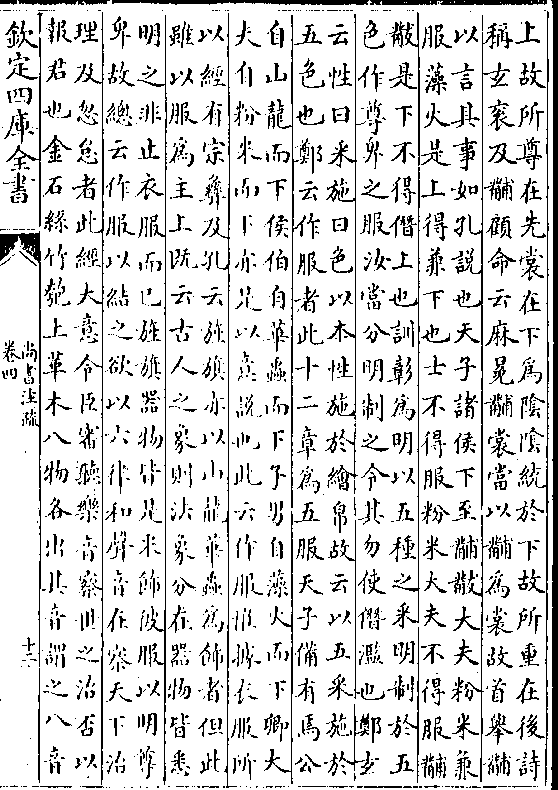 上故所尊在先裳在下為陰陰統於下故所重在後詩
稱玄衮及黼顧命云麻冕黼裳當以黼為裳故首舉黼
以言其事如孔說也天子諸侯下至黼黻大夫粉米兼
服藻火是上得兼下也士不得服粉米大夫不得服黼
黻是下不得僭上也訓彰為明以五種之采明制於五
色作尊卑之服汝當分明制之令其勿使僭濫也鄭玄
云性曰采施曰色以本性施於繪帛故云以五采施於
五色也鄭云作服者此十二章為五服天子備有焉公
自山龍而下侯伯自華蟲而下子男自藻火而下卿大
夫自粉米而下亦是以意說也此云作服惟據衣服所
以經有宗彝及孔云旌旗亦以山龍華蟲為飾者但此
雖以服為主上既云古人之象則法象分在器物皆悉
明之非止衣服而已旌旗器物皆是采飾被服以明尊
卑故總云作服以結之欲以六律和聲音在察天下治
理及忽怠者此經大意令臣審聽樂音察世之治否以
報君也金石絲竹匏土革木八物各出其音謂之八音
欽定四庫全書
尚書注疏
卷四
十二